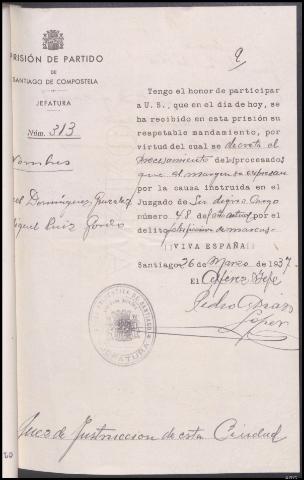 PRISIÓN DE PARTIDO
DE
SANTIAGO DE COMPOSTELA
JEFATURA
Núm. 313
Nombres
Domínguez
Miguel Ruiz
9
Tengo el honor de participar
a U.S., que en el día de hoy, se
ha recibido en esta prisión su
respetable mandamiento, por
virtud del cual se decreta el
procesamiento del procesados
que al margen se expresan
por la causa instruida en el
Juzgado de Ser digno Cargo
número 48 de por el
delito de marcas
¡VIVA ESPAÑA!
Santiago 26 de Marzo de 1937
El Alferez Jefe
Pedro
López
JEFATURA
Juez de Instrucción de esta Ciudad